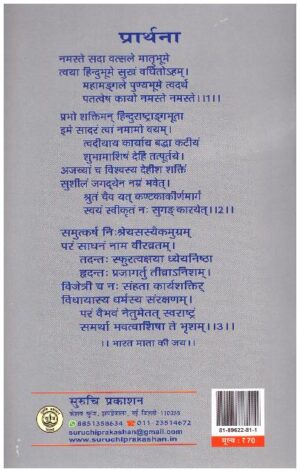 प्रार्थना
नमस्ते सदा वत्सले मातृभूमे
त्वया हिन्दुभूमे सुखं वर्धितोऽहम्।
महामङ्गले पुण्यभूमे त्वदर्थे
पतत्वेष कायो नमस्ते नमस्ते।।1।।
प्रभो शक्तिमन् हिन्दुराष्ट्राङ्गभूता
इमे सादरं त्वां नमामो वयम्
त्वदीयाय कार्याय बद्धा कटीयं
शुभामाशिषं देहि तत्पूर्तये।
अजय्यां च विश्वस्य देहीश शक्तिं
सुशीलं जगद्येन नम्रं भवेत्।
श्रुतं चैव यत् कण्टकाकीर्णमार्गं
स्वयं स्वीकृतं नः सुगङ् कारयेत्।।2।।
समुत्कर्ष निःश्रेयसस्यैकमुग्रम्
परं साधनं नाम वीरव्रतम्।
तदन्तः स्फुरत्वक्षया ध्येयनिष्ठा
हृदन्तः प्रजागर्तु तीव्राऽनिशम्।
विजेत्री च नः संहता कार्यशक्तिर्
विधायास्य धर्मस्य संरक्षणम्।
परं वैभवं नेतुमेतत् स्वराष्ट्रं
समर्था भवत्वाशिषा ते भृशम्।।3।।
।। भारत माता की जय।।
सुरुचि प्रकाशन
केशव कुंज, झण्डेवाला, नई दिल्ली 110055
8851358634 011-23514672
suruchiprakashan@gmail.com
www.suruchiprakashan.in
81-89622-81-1
मूल्य : ₹ 70